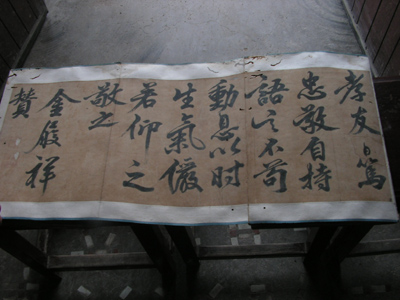 孝友日篤
忠敬自持
語言不苟
動息以时
生氣儼
若仰之
敬之
金履祥
贊